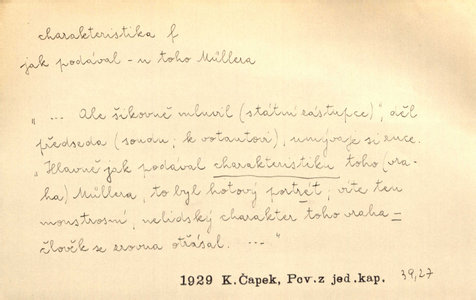 charakteristika f
jak podával – u toho Müllera
„ ... Ale šikovně mluvil (státní zástupce)", děl
předseda (soudu; k votantovi), umývaje si ruce.
„Hlavně jak podával charakteristiku toho (vra-
ha) Müllera, to byl hotový portrét; víte ten
monstrosní, nelidský charakter toho vraha =
člověk se zrovna otřásal. ... "
1929 K.Čapek, Pov.z jed.kap. 39,27